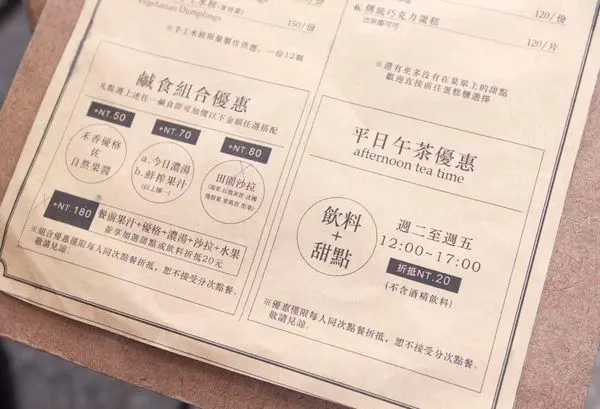 Vegetarian Dumplings
150/份
※手工水餃限量製作供應，一份12顆
鹹食組合優惠
凡點選上述任一鹹食即可加價以下金額任選搭配
+NT.50
禾香優格
佐
自然果醬
+NT.70
a.今日濃湯
b.鮮榨果汁
(以上擇一)
+NT.80
田園沙拉
+NT.180
餐前果汁+優格+濃湯+沙拉+水果
並享加選甜點或飲料折抵20元
※組合優惠僅限每人同次點餐折抵，恕不接受分次點餐。
敬請見諒。
120/份
傳統巧克力蛋糕
法芙娜可可
120/片
※還有更多沒有在菜單上的甜點
歡迎直接前往蛋糕櫃選擇
平日午茶優惠
afternoon tea time
飲料
+
甜點
週二至週五
12:00~17:00
折抵NT.20
(不含酒精飲料)
※優惠僅限每人同次點餐折抵，恕不接受分次點餐。
敬請見諒。